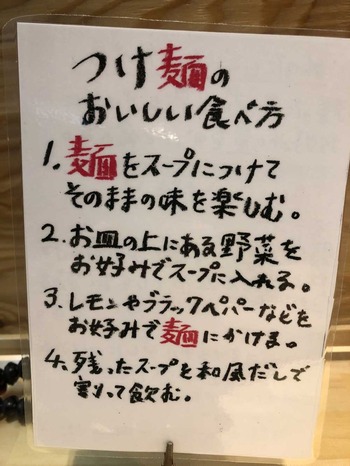 つけ麺の
おいしい食べ方
1.麺をスープにつけて
そのままの味を楽しむ。
2.お皿の上にある野菜を
お好みでスープに入れる。
3.レモンやブラックペパーなどを
お好みで麺にかける。
4.残ったスープを和風だしで
割って飲む。